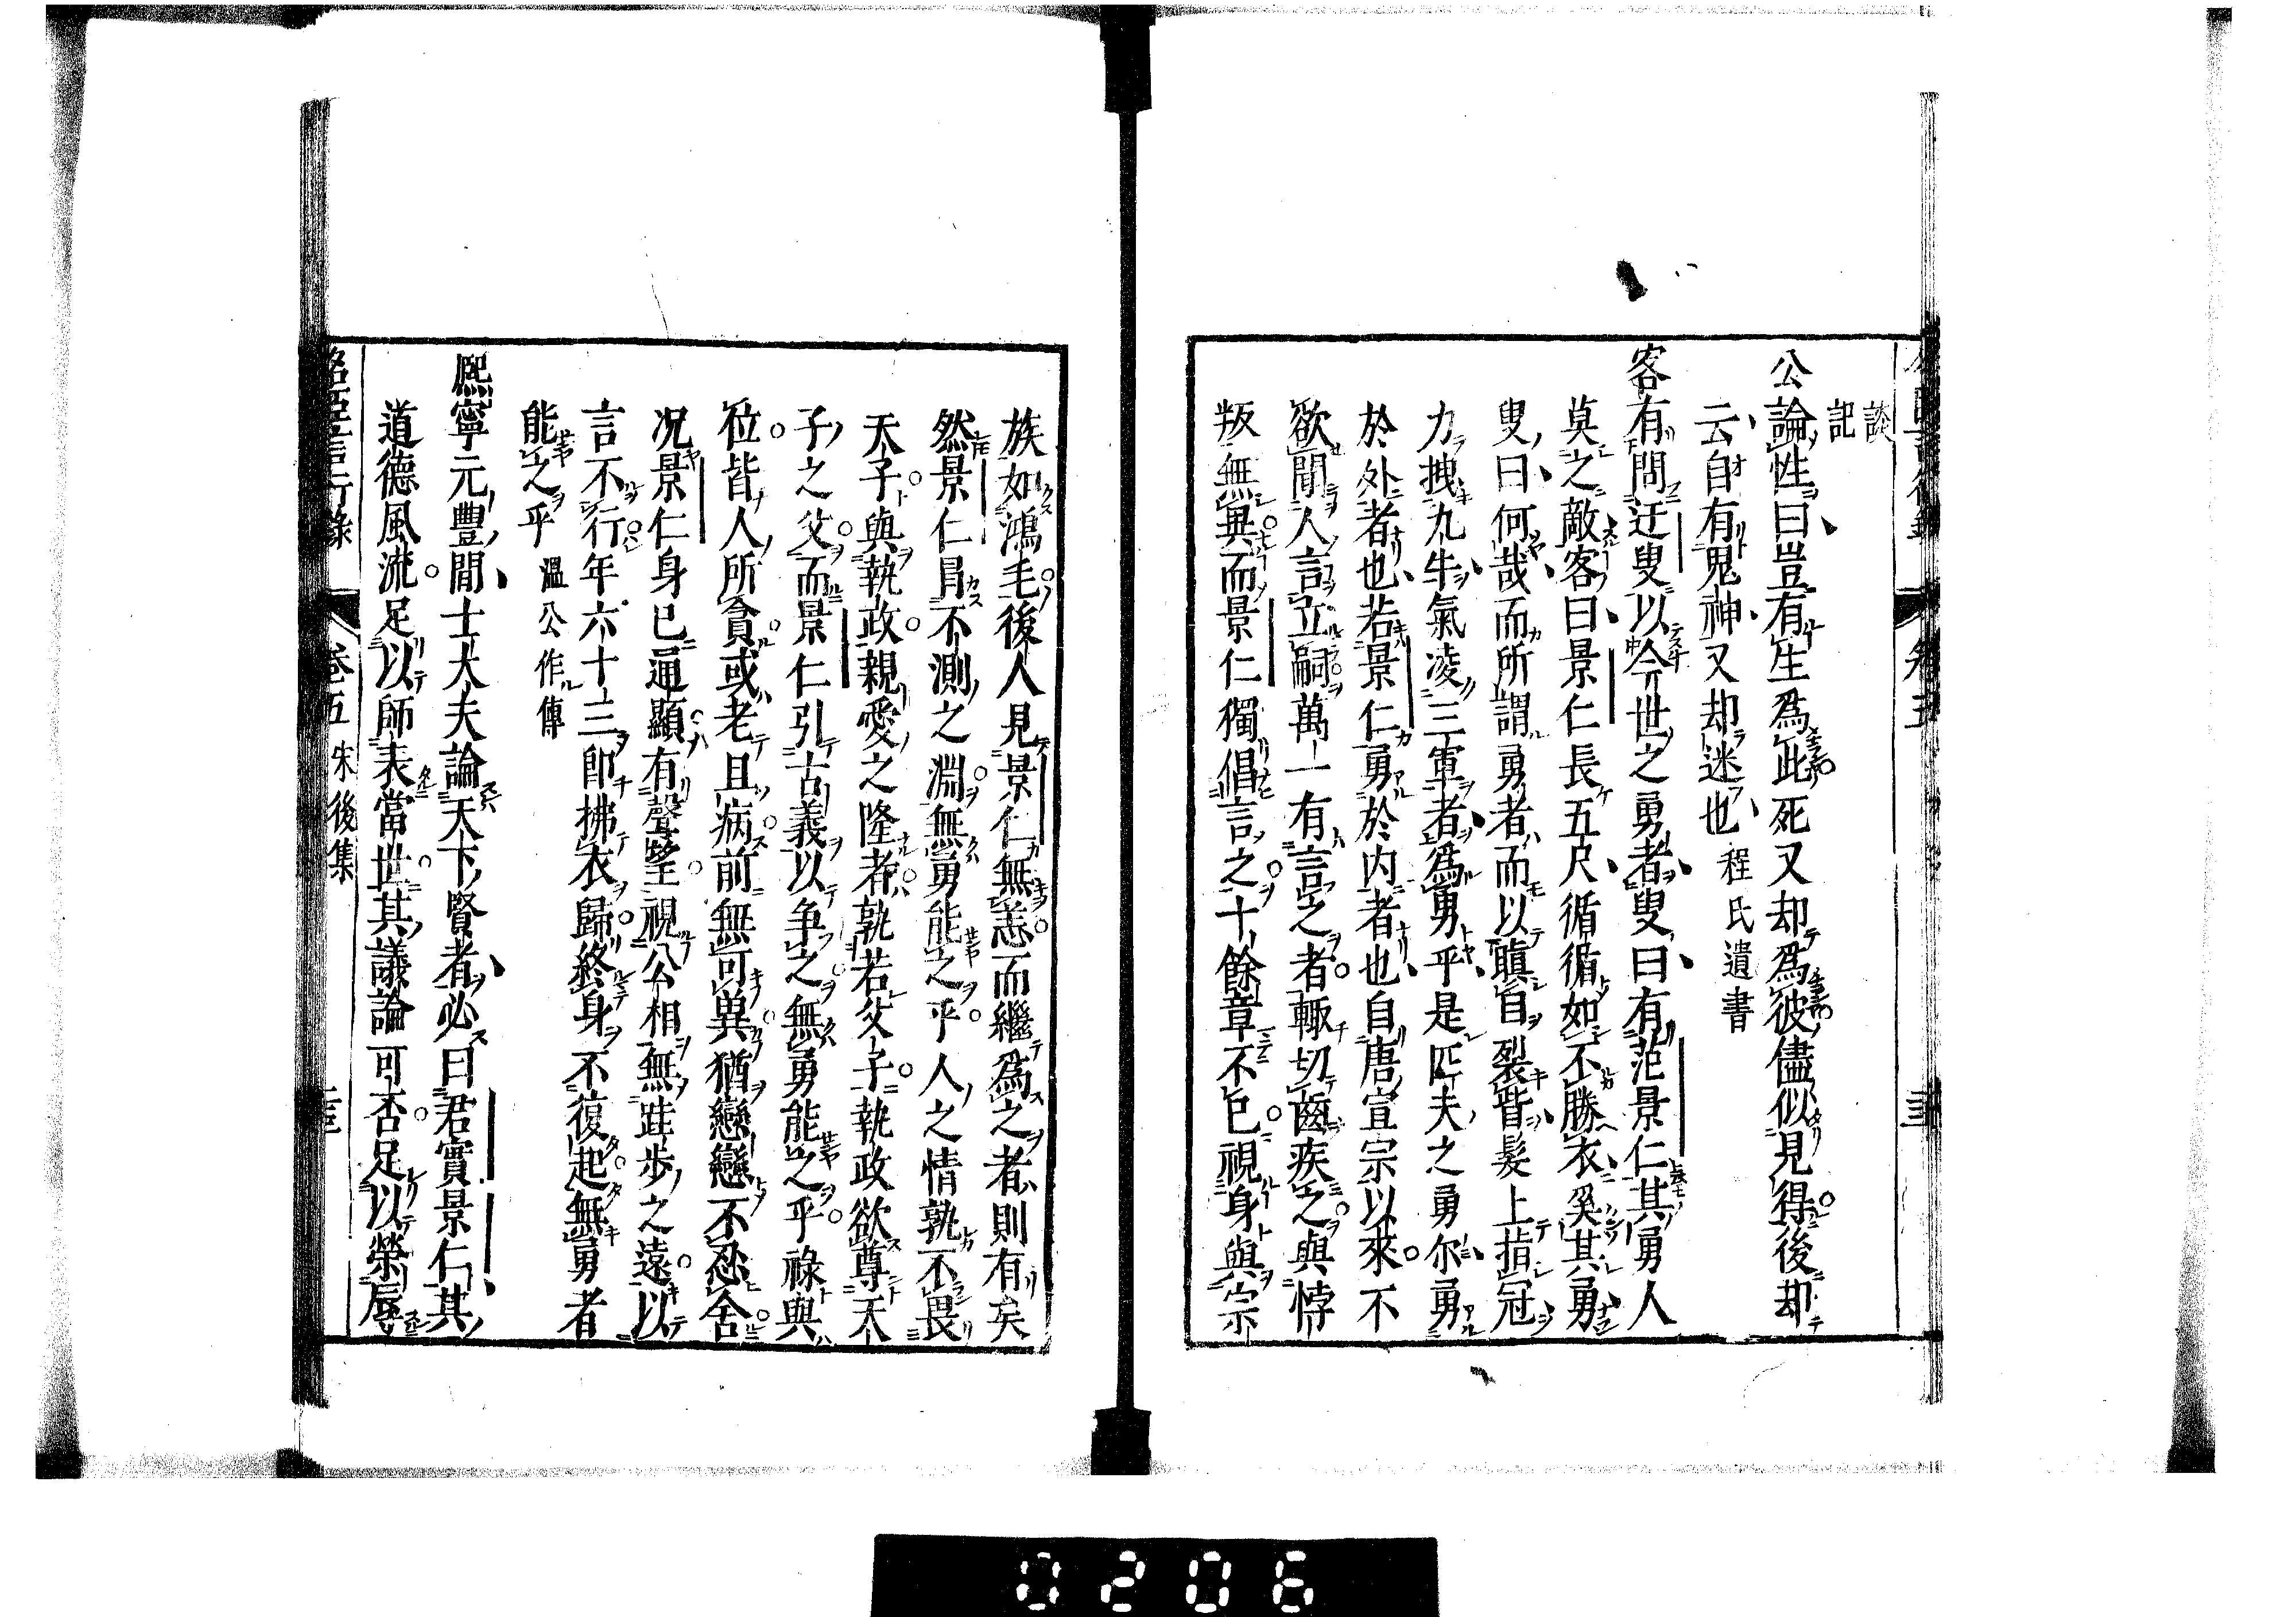 談
記
公論性曰豈有生爲此死又却爲彼儘似見得後却
云自有鬼神又却迷也程氏遺書
客有問迂叟以今世之勇者叟曰有范景仁其勇人
莫之敵客曰景仁長五尺循循如不勝衣奚其勇
叟曰何哉而所謂勇者而以瞋目裂眥髮上指冠
力拽九牛氣凌三軍者爲勇乎是匹夫之勇尔勇
於外者也若景仁勇於内者也自唐宣宗以來不
欲聞人言立嗣萬一有言之者輙切齒疾之與悖
叛無異而景仁獨倡言之十餘章不已視身與宗
族如鴻毛後人見景仁無恙而繼爲之者則有矣
然景仁肩不測之淵無勇能之乎人之情孰不畏
天子與執政親愛之隆者孰若父子執政欲尊天
子之父而景仁引古義以争之無勇能之乎祿與
位皆人所貪或老且病前無可異猶戀戀不忍舍
况景仁身已通顯有聲望視公相無跬歩之遠以
言不行年六十三即拂衣歸終身不復起無勇者
能之乎温公作傳
熙寧元豐間士大夫論天下賢者必曰君實景仁其
道德風流足以師表當世其議論可否足以榮辱
卷五 宋後集
0206